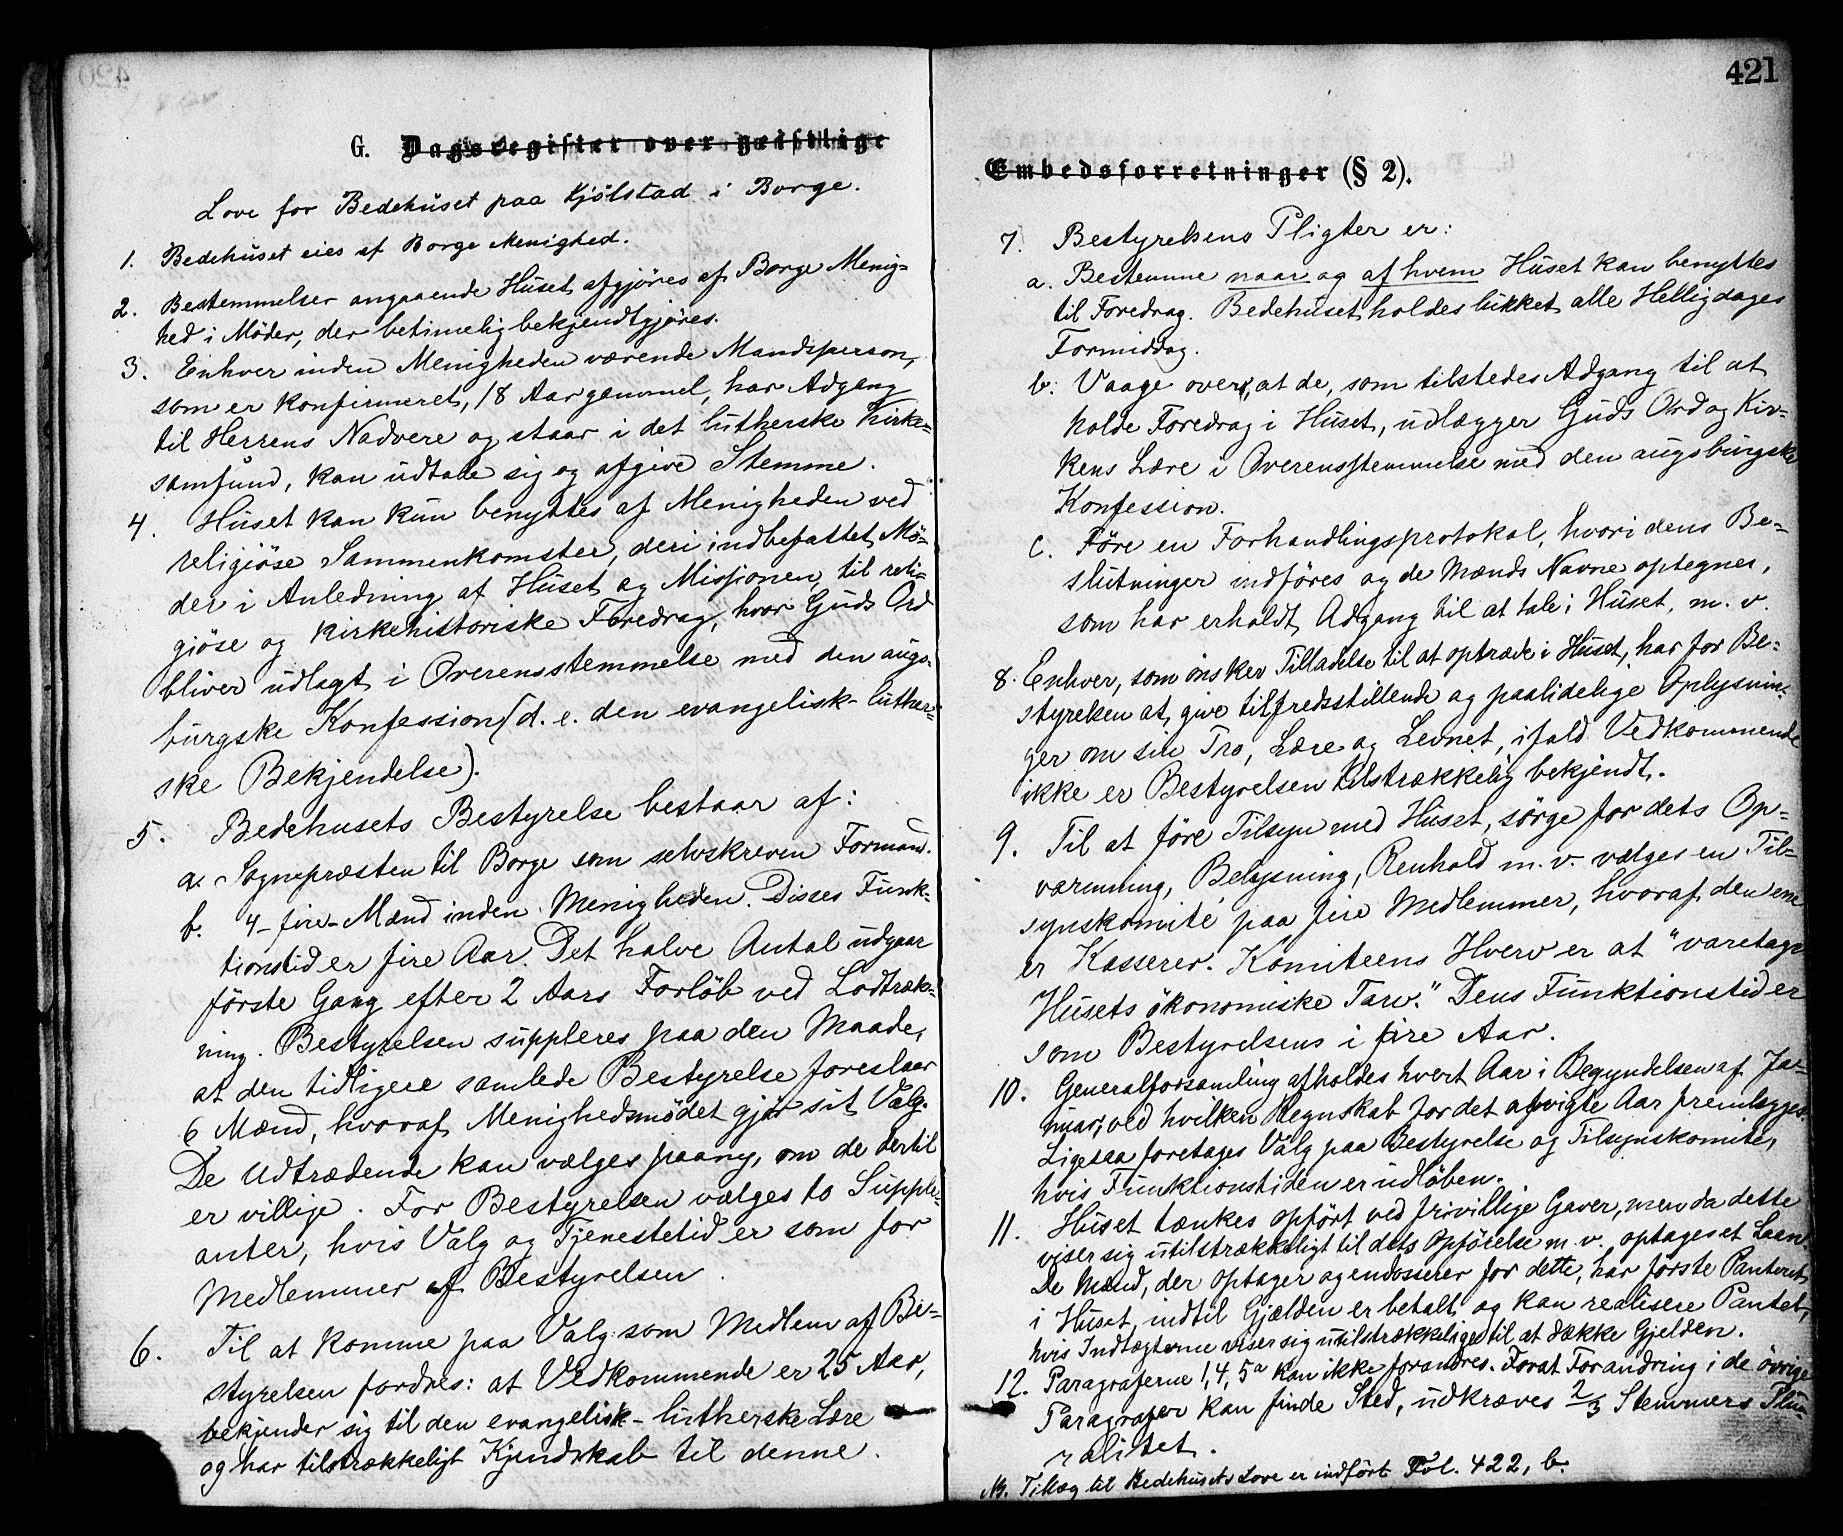 G. Dagsregister over geistlige
Love for Bedehuset paa Kjölstad i Borge.
1. Bedehuset eies af Borge Menighed.
2. Bestemmelser angaaende Huset afgjöres af Borge Menig=
hed i Möder, der betimelig bekjendtgjöres.
3. Enhver inden Menigheden værende Mandsperson,
som er konfirmeret, 18 Aar gammel, har Adgang
til Herrens Nadvere og staar i det lutherske Kirke=
samfund, kan udtale sig og afgive Stemme.
4. Huset kan kun benyttes af Menigheden ved
religiöse Sammenkomster, deri indbefattet Mö=
der i Anledning af Huset og Missionen, til reli=
giöse og kirkehistoriske Foredrag, hvor Guds Ord
bliver udlagt i Overensstemmelse med den augs=
burgske Konfession (d. e. den evangelisk-luther=
ske Bekjendelse).
5. Bedehusets Bestyrelse bestaar af:
a. Sognepræsten til Borge som selvskreven Formand.
b. 4-fire-Mænd inden Menigheden. Disses Funk=
tionstid er fire Aar. Det halve Antal udgaar
förste Gang efter 2 Aars Forlöb ved Lodtræk=
ning. Bestyrelsen suppleres paa den Maade,
at den tidligere samlede Bestyrelse foreslaar
6 Mænd, hvoraf Menighedsmödet gjör sit Valg.
De Udtrædende kan vælges paany, om de dertil
er villige. For Bestyrelsen vælges to Supple=
anter, hvis Valg og Tjenestetid er som for
Medlemmer af Bestyrelsen.
6. Til at komme paa Valg som Medlem af Be=
styrelsen fordres: at Vedkommende er 25 Aar,
bekjender sig til den evangelisk-lutherske Lære
og har tilstrækkeligt Kjendskab til denne.
421
Embedsforretninger (§ 2).
7. Bestyrelsens Pligter er:
a. Bestemme naar og af hvem Huset kan benyttes
til Foredrag. Bedehuset holdes lukket alle Helligdages
Formiddag.
b. Vaage over, at de, som tilstedes Adgang til at
holde Foredrag i Huset, udlægger Guds Ord og Kir=
kens Lære i Overensstemmelse med den augsburgske
Konfession.
c. Före en Forhandlingsprotokol, hvori dens Be=
slutninger indföres og de Mænds Navne optegnes,
som har erholdt Adgang til at tale i Huset, m. v.
8. Enhver, som önsker Tilladelse til at optræde i Huset, har for Be=
styrelsen at give tilfredsstillende og paalidelige Oplysnin=
ger om sin Tro, Lære og Levnet, ifald Vedkommende
ikke er Bestyrelsen tilstrækkelig bekjendt.
9. Til at före Tilsyn med Huset, sörge for dets Op=
varmning, Belysning, Renhold m. v. vælges en Til=
synskomite paa fire Medlemmer, hvoraf den ene
er Kasserer. Komiteens Hverv er at "varetage
Husets ökonomiske Tarv." Dens Funktionstid er
som Bestyrelsens i fire Aar.
10. Generalforsamling afholdes hvert Aar i Begyndelsen af Ja=
nuar, ved hvilken Regnskab for det afvigte Aar fremlægges.
Ligesaa foretages Valg paa Bestyrelse og Tilsynskomite,
hvis Funktionstiden er udlöben.
11. Huset tænkes opfört ved frivillige Gaver, men da dette
viser sig utilstrækkeligt til dets Opförelse m. v. optages et Laan
De Mænd, der optager og endosserer for dette, har förste Panteret
i Huset, indtil Gjælden er betalt og kan realisere Pantet,
hvis Indtægterne viser sig utilstrækkelige til at dække Gjelden.
12. Paragraferne 1, 4, 5a kan ikke forandres. For at Forandring i de övrige
Paragrafer kan finde Sted, udkræves 2/3 Stemmers Plu=
ralitet.
NB. Tillæg til Bedehusets Love er indfört Fol. 422, b.